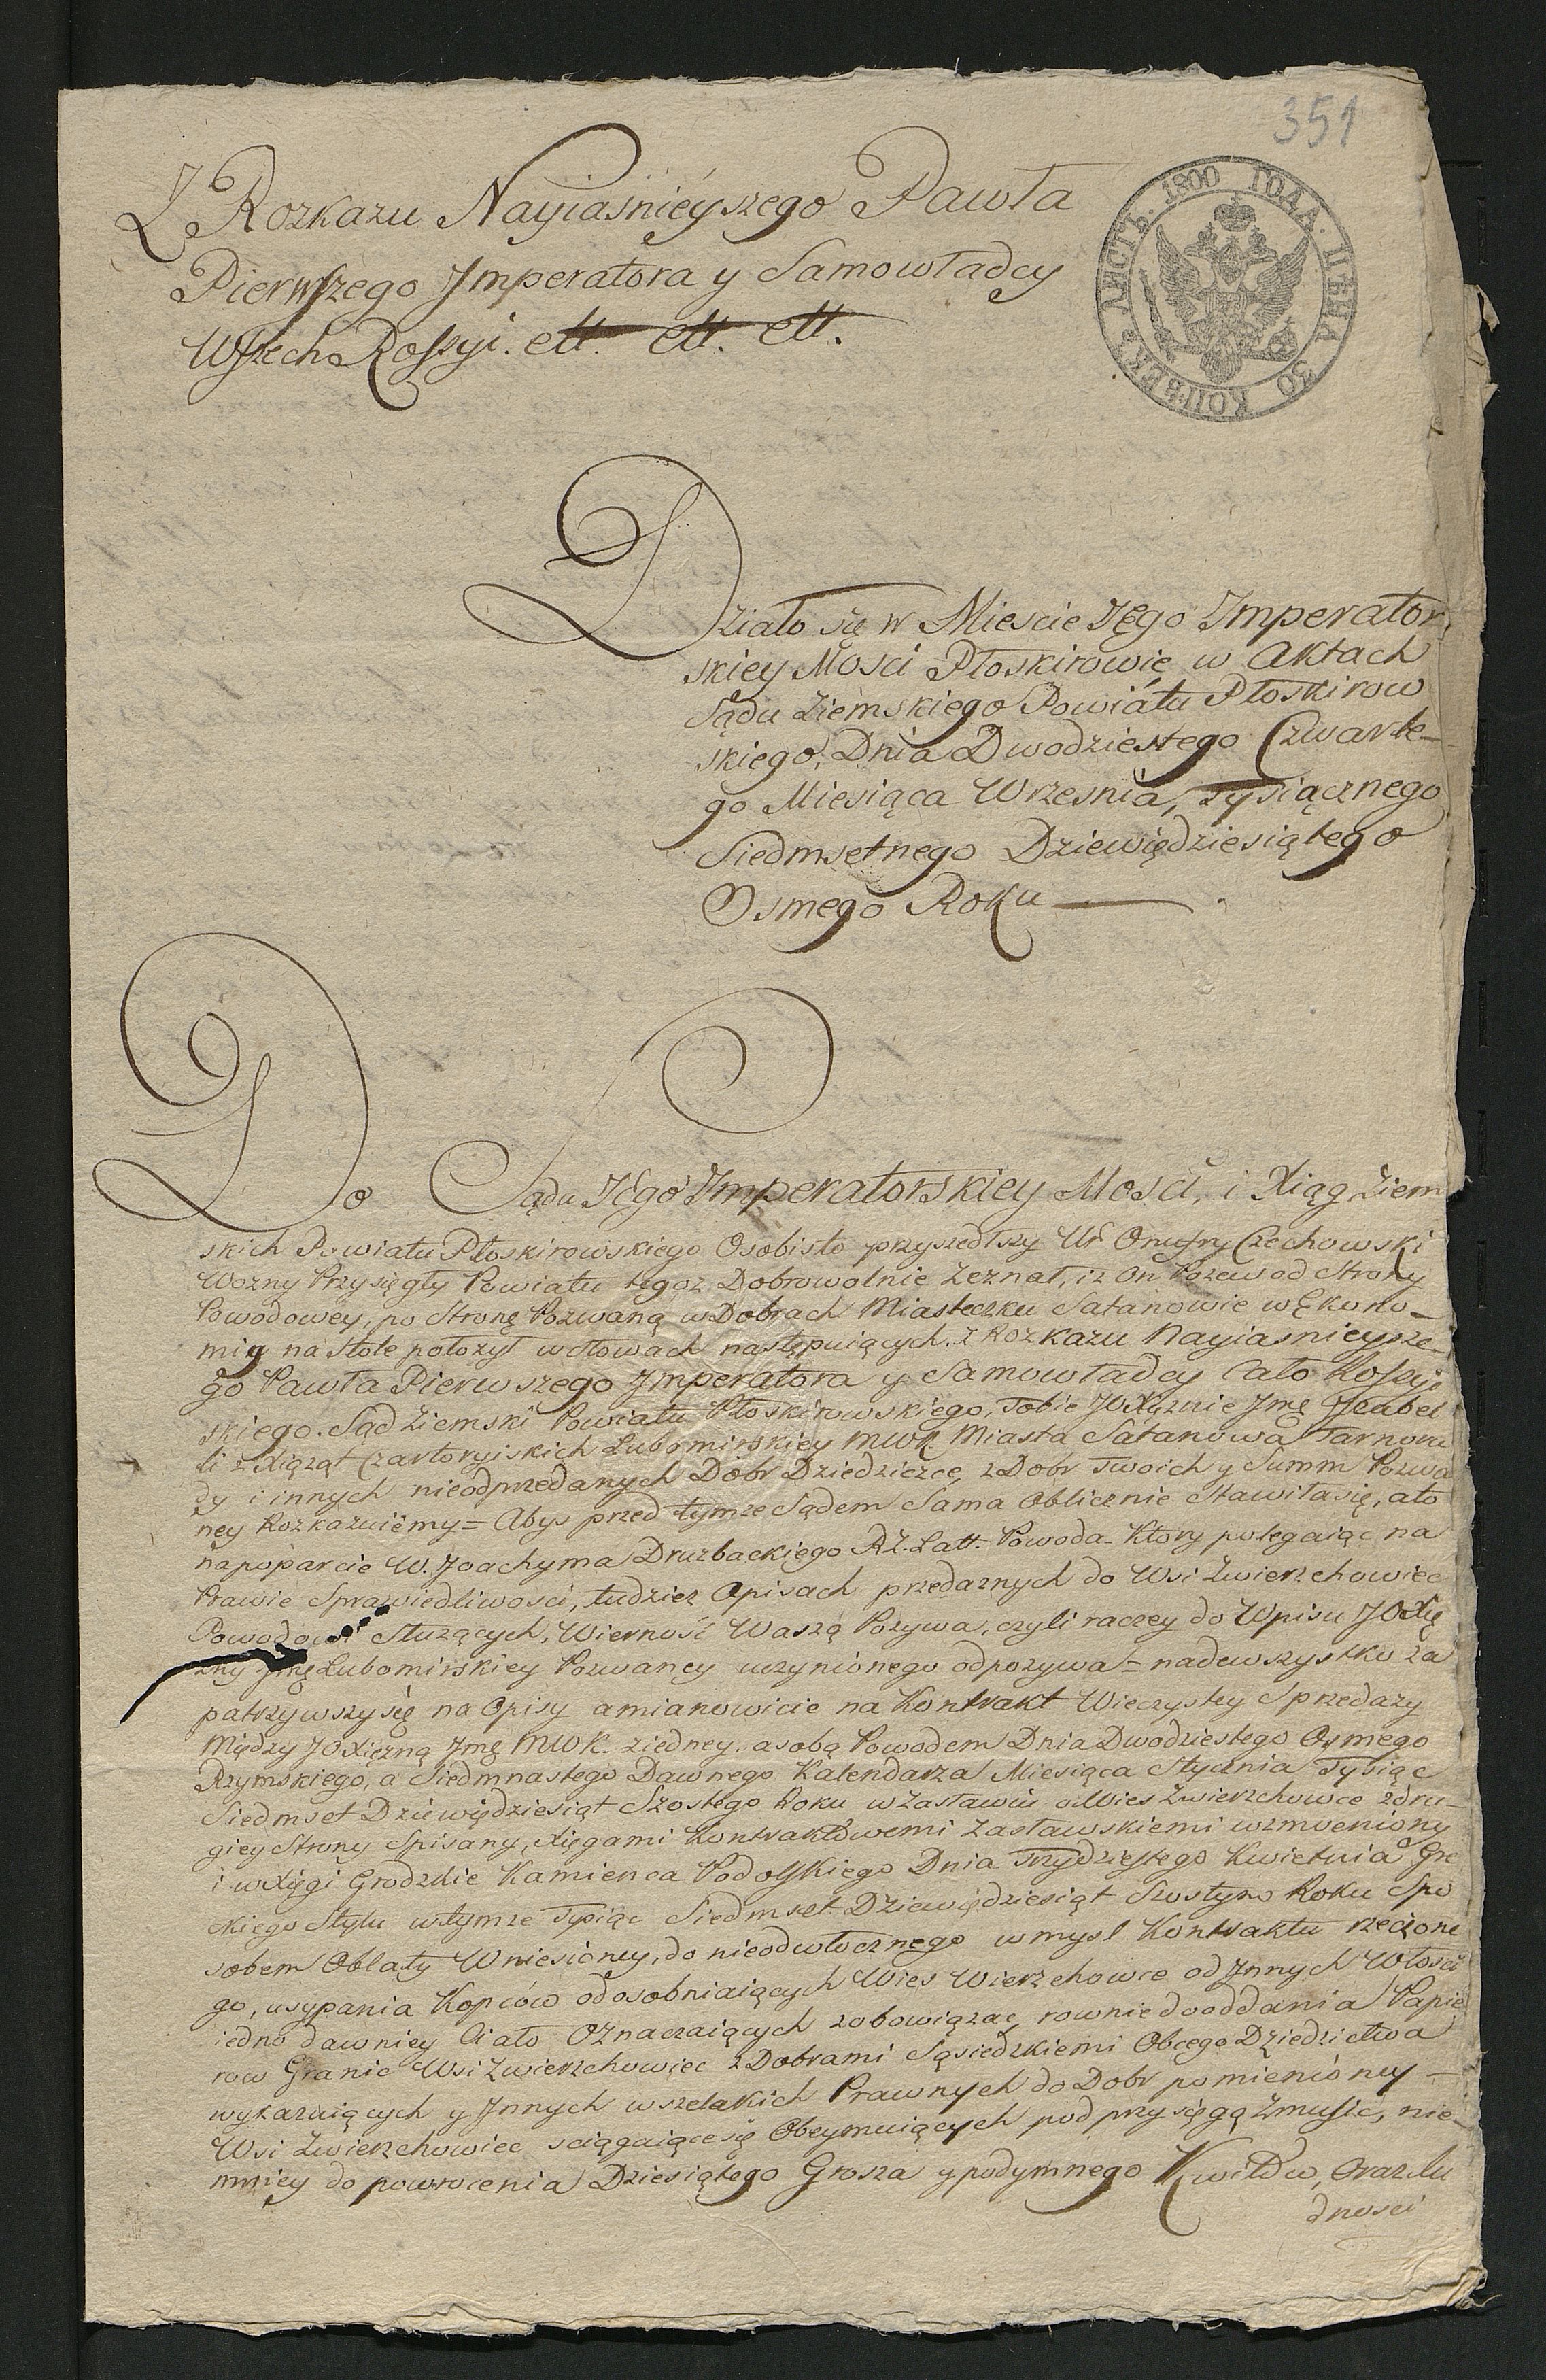 351
ЛИСТЬ. 1800 ГОДА. ЦѢНА 30 КОПѢЕКЪ.
Z Rozkazu Nayiasnieyszego Pawła
Pierwszego Imperatora y Samowładcy
Wszech Rossyi. ett. ett. ett.
Działo się w Miescie Jego Imperator
skiey Mosci Płoskirowie w Aktach
Sądu Ziemskiego Powiatu Płoskirow
skiego, Dnia Dwodziestego Czwarte-
go Miesiąca Wrzesnia, tysiącznego
Siedmsetnego Dziewiędziesiątego
Osmego Roku
Do Sądu Jego Imperatorskiey Mosci, i Xiąg Ziem
skich Powiatu Płoskirowskiego Osobisto przyszedłszy Ur Onufry Czechowski
Wozny Przysięgły Powiatu tegoz Dobrowolnie Zeznał, iz On Pozew od Strony
Powodowey, po Stronę Pozwaną w Dobrach Miasteczku Satanowie w Ekono-
mig na stole położył w słowach następuiących. Z Rozkazu Nayiasnieysze-
go Pawła Pierwszego Imperatora y Samowładcy Cało Rossyi
skiego. Sąd Ziemski Powiatu Płoskirowskiego, Tobie JOXiężnie Jmę Izabel
li z Xiąząt Czartoryiskich Lubomirskiey MWK Miasta Satanowa Tarnoru
dy i innych nieodprzedanych Dobr Dziedziczce, z Dobr Twoich y Summ Pozwa
ney Rozkazuiemy = Abys przed tymze Sądem Sama Oblicznie stawiła się, a to
na poparcie W. Joachyma Druzbackiego RZ. Latt. Powoda Ktory polegaiąc na
Prawie Sprawiedliwosci, tudziez Opisach przedaznych do Wsi Zwierzchowiec
Powodowi Służących, Wiernosć Waszą Pozywa, czyli raczey do Wpisu JOXię
zny Jmę Lubomirskiey Pozwaney uczynionego odpozywa = nadewszystko za
patrzywszy się na Opisy a mianowicie na Kontrakt Wieczystey Sprzedazy
Między JOXiężną Jmę MWK. ziedney, a sobą Powodem Dnia Dwodziestego Osmego
Rzymskiego, a Siedmnastego Dawnego Kalendarza Miesiąca Stycznia Tysiąc
Siedmset Dziewiędziesiąt Szostego Roku w Zasławiu o Wies Zwierzchowce z dru-
giey Strony Spisany, Xięgami Kontraktowemi Zasławskiemi wzmocniony
i w Xięgi Grodzkie Kamienca Podolskiego Dnia Trzydziestego Kwietnia Gre
ckiego Stylu w tymze Tysiąc Siedmset Dziewiędziesiąt Szostym Roku Spo
sobem Oblaty Wniesioney, do nieodwłocznego w mysl Kontraktu rzeczone
go, usypania Kopców odosobniaiących Wies Wierzchowce od Innych Włosci
iedno dawniey Ciało Oznaczaiących zobowiązać, rownie do oddania Papie
row Granic Wsi Zwierzchowiec z Dobrami Sąsiedzkiemi Obcego Dziedzictwa
wykazuiących y Innych wszelakich Prawnych do Dobr pomienioney
Wsi Zwierzchowiec sciągaiące się Obeymuiących pod przysięgą Zmusic, nie-
mniey do powrocenia Dziesiątego Grosza y podymnego Kwitów, Oraz lu
dnosci